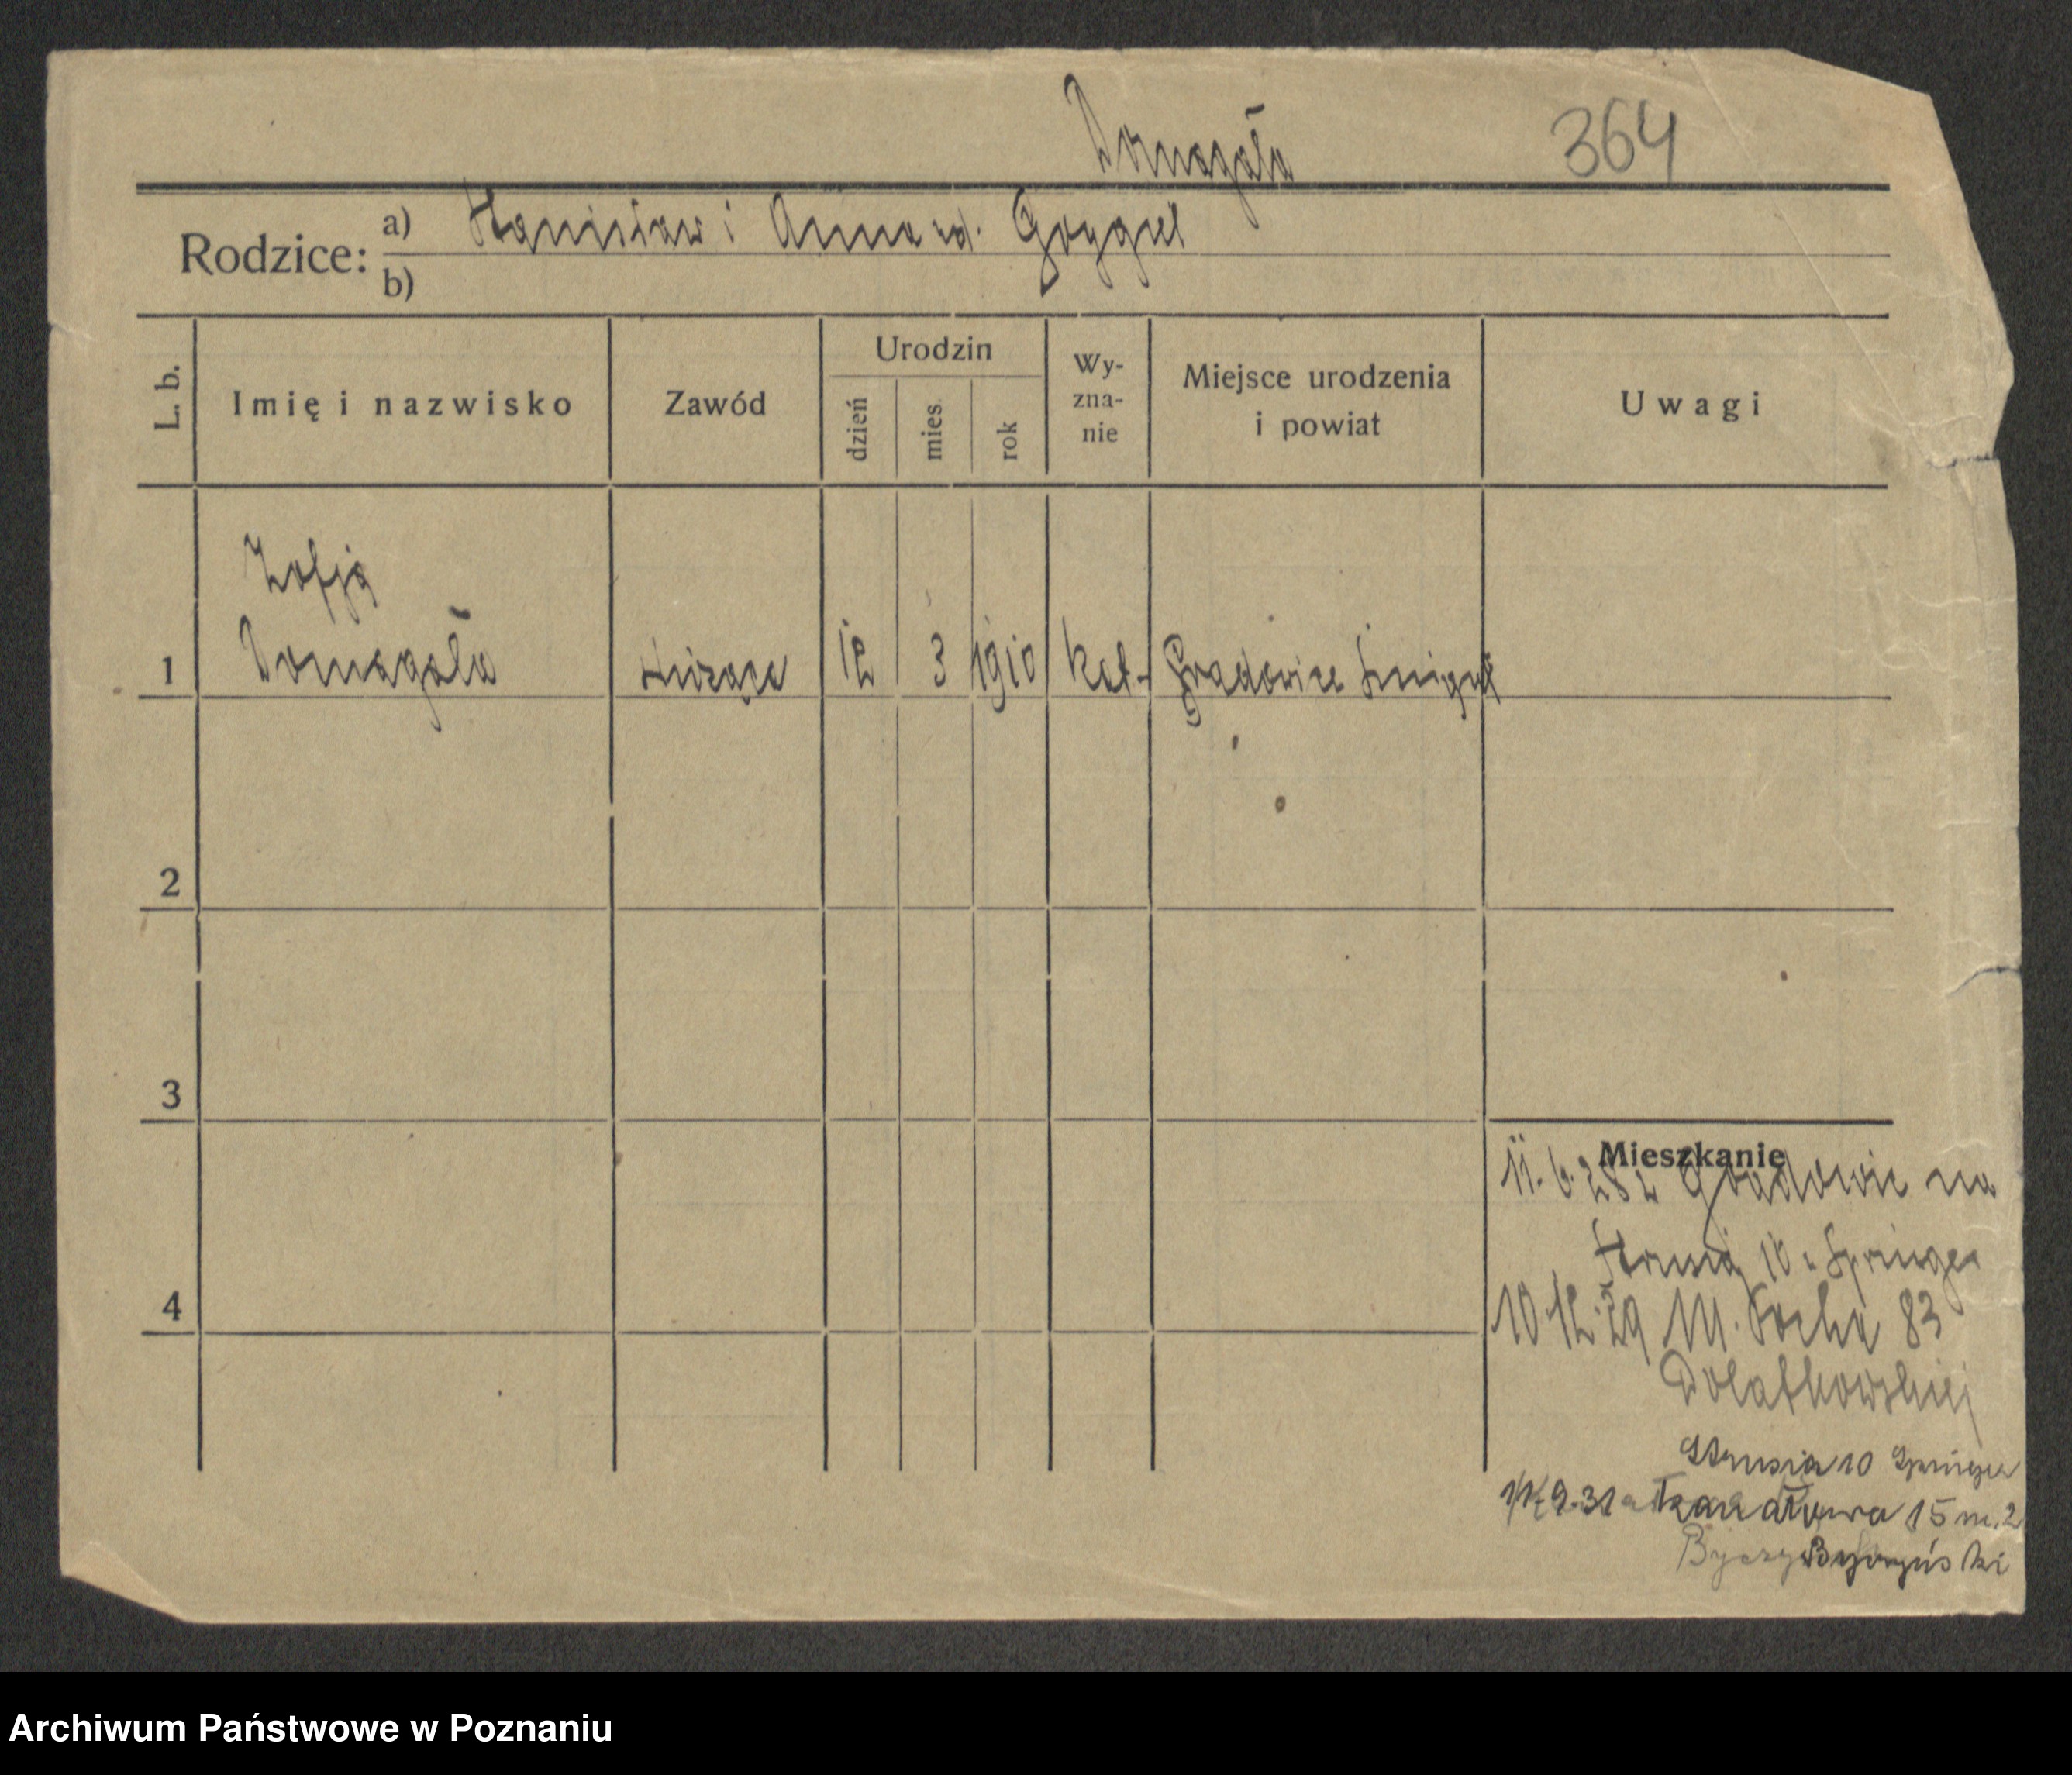 Domagała 364
Rodzice: a) Stanisław i Anna ud. Grygiel
b)
L. b.
Imię i nazwisko
Zawód
Urodzin
dzień
mies.
rok
Wy-
zna-
nie
Miejsce urodzenia
i powiat
Uwagi
Zofja
1 Domagała służąca 12 3 1910 kat. Gradowice Śmigiel
2
3
4
Mieszkanie
11. 6. 28 z Gradowic na
Strusia 10 u Springer
10.12.29 M. Focha 83
Dolatkowskiej
Strusia 10 Springer
9.31 15 m. 2
Byczyński
Archiwum Państwowe w Poznaniu